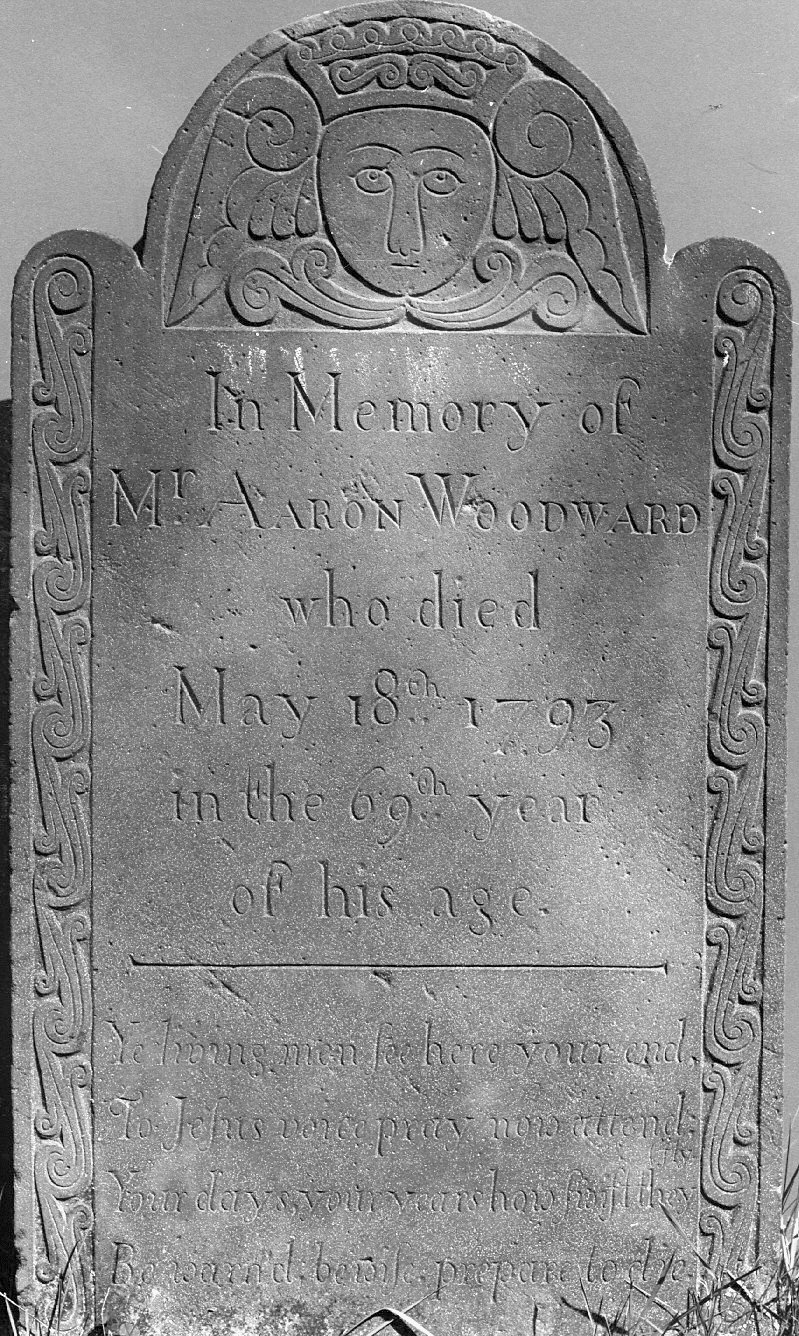 In Memory of
Mr. AARON WOODWARD
who died
May 18th. 1793
in the 69th. year
of his age.
Ye living men ſee here your end,
To Jeſus voice pray now attend;
Your days, your years how ſwift they
Be warn'd, be wiſe, prepare to die.